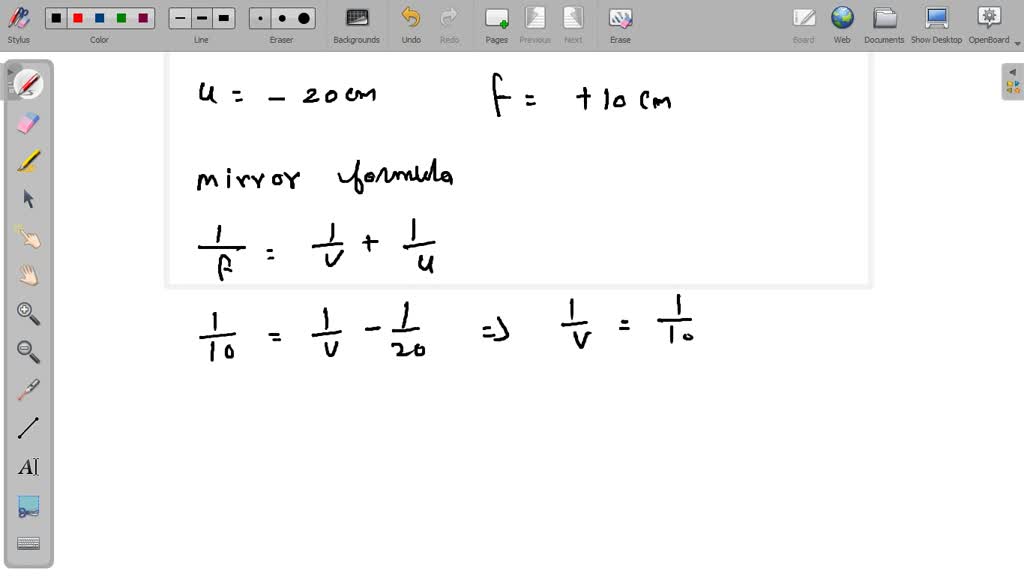 Stylus Color Line Eraser Backgrounds Undo Redo Pages Previous Next Erase Board Web Documents Show Desktop OpenBoard
u = - 20 cm f = + 10 cm
mirror formula
1/f = 1/v + 1/u
1/10 = 1/v - 1/20 => 1/v = 1/10
AI